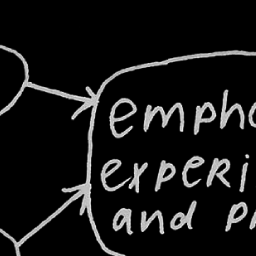 empha
experi
and pr